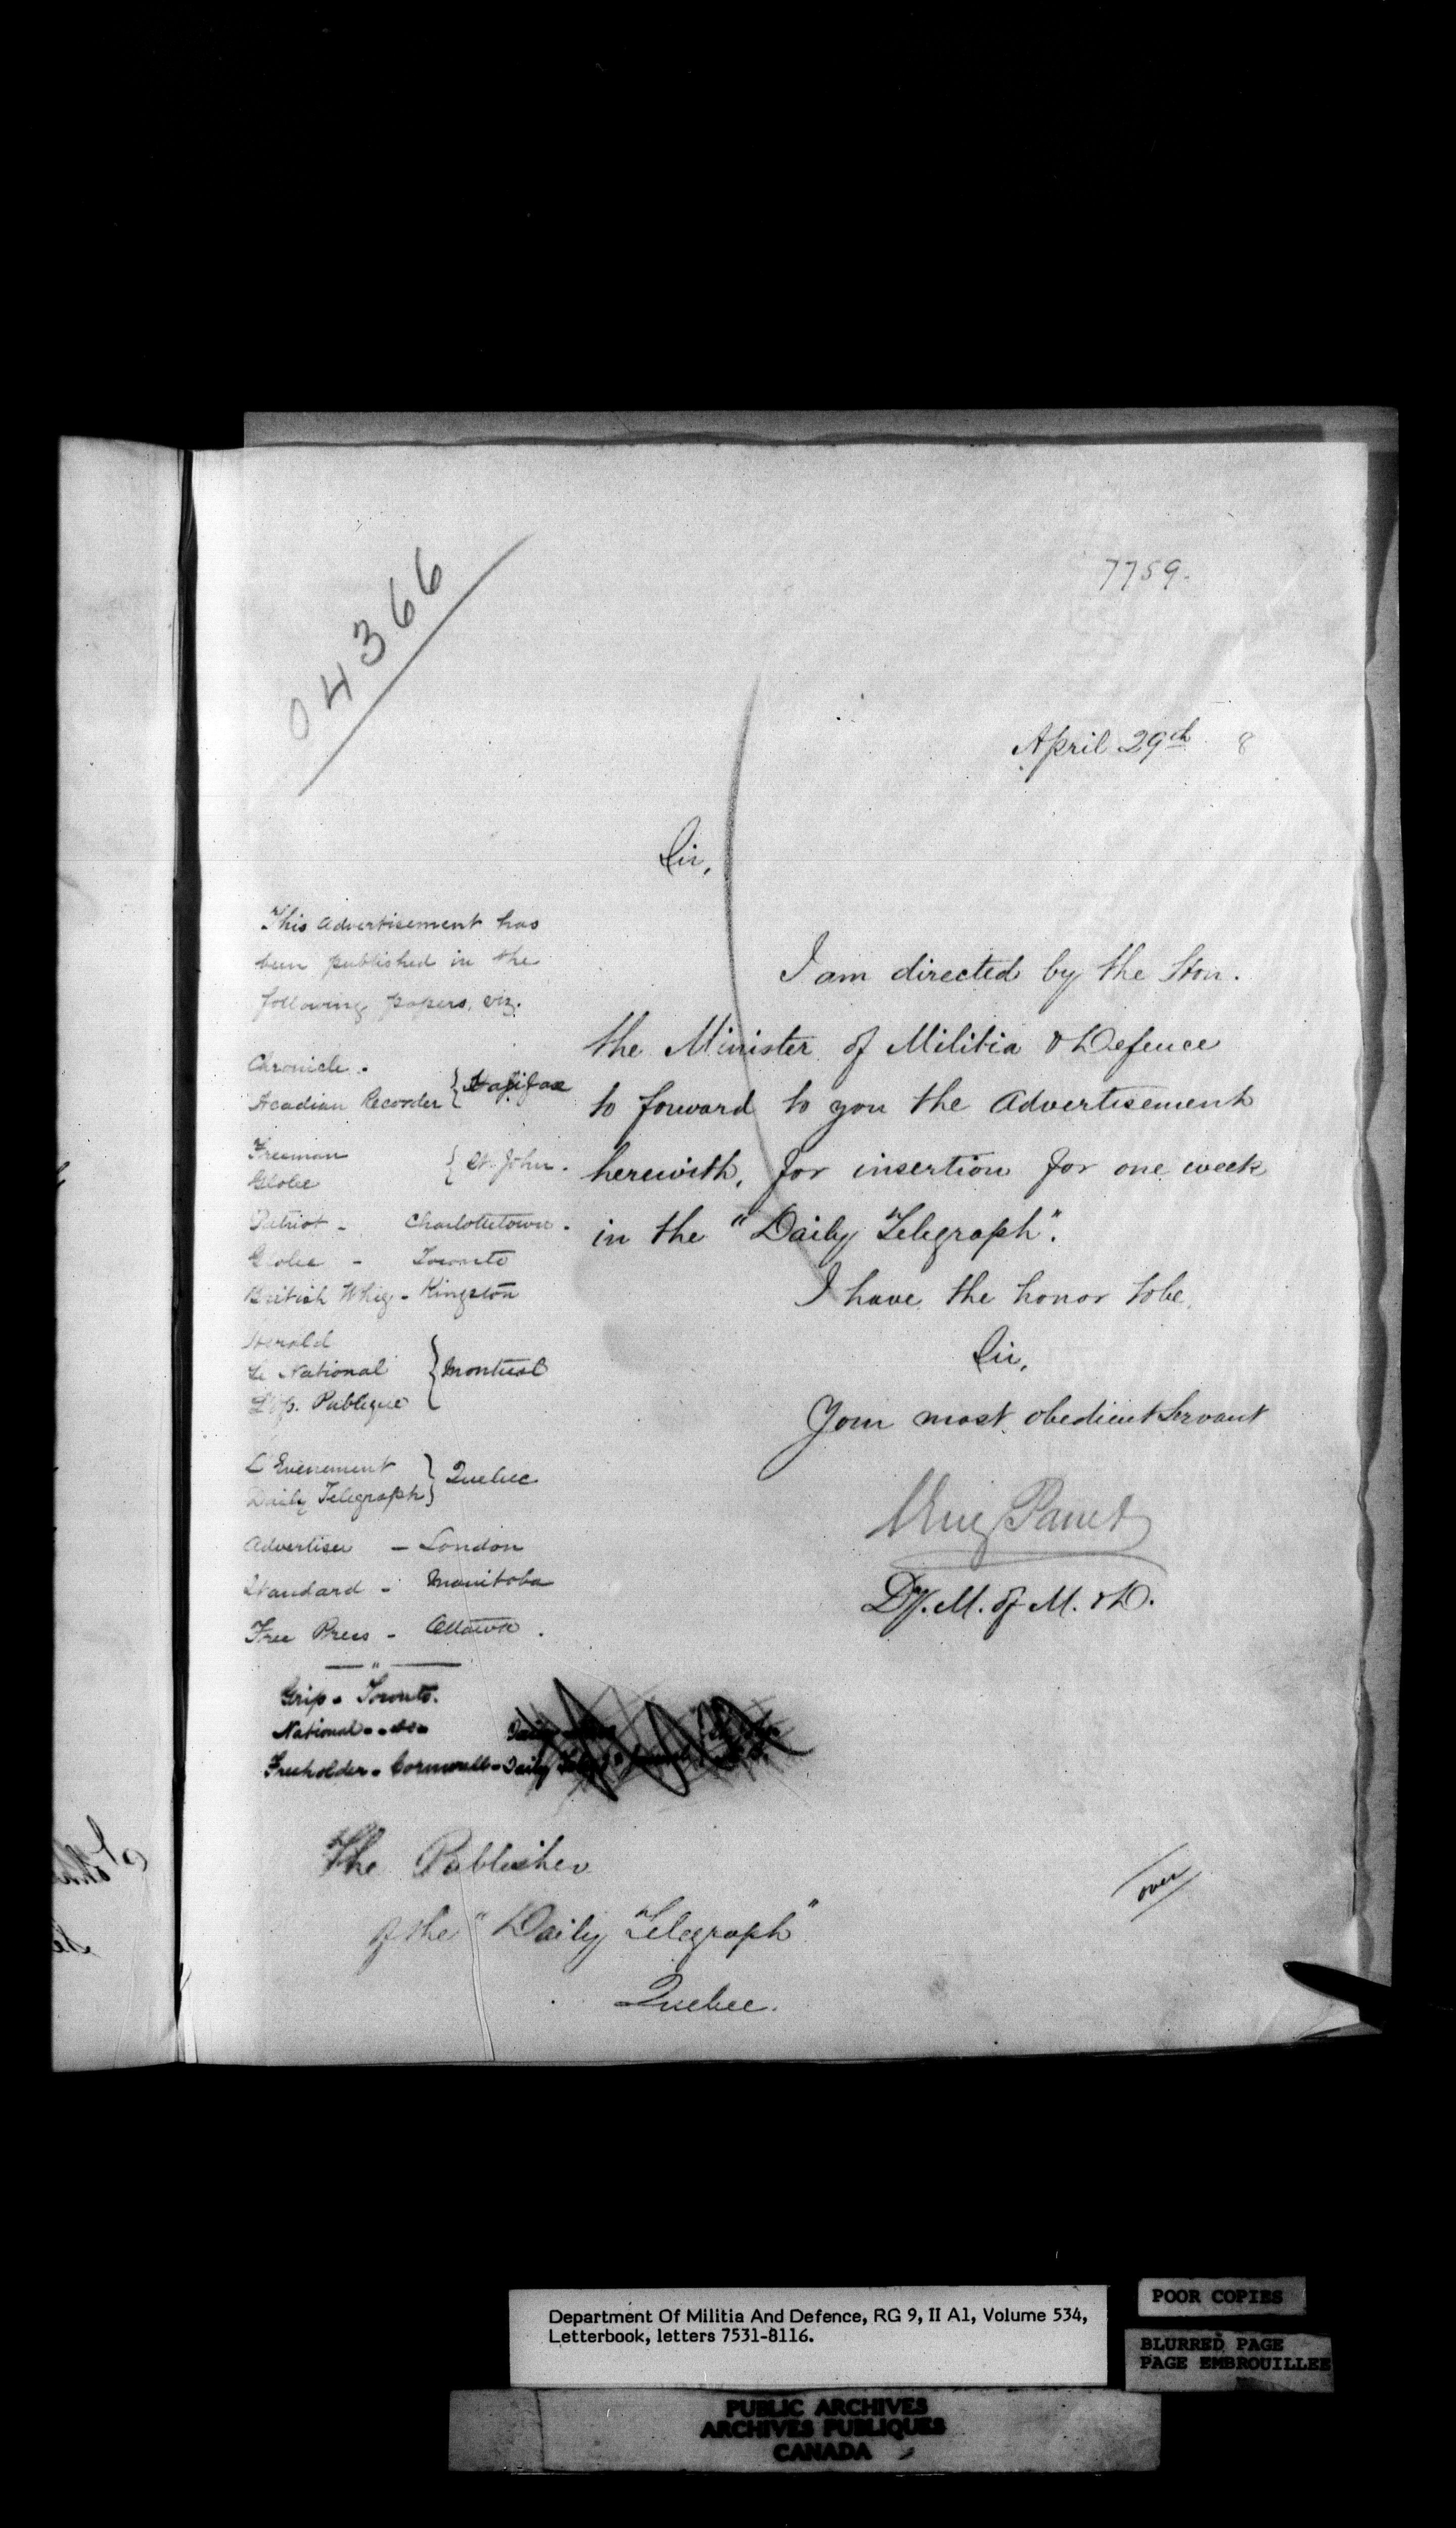 04366
7759.
April 29th 8
Sir,
I am directed by the Hon.
the Minister of Militia & Defence
to forward to you the Advertisement
herewith, for insertion for one week
in the "Daily Telegraph".
I have the honor to be,
Sir,
Your most obedient Servant
Eug Panet
Dy. M. of M. & D.
This advertisement has
been published in the
following papers, viz.
Chronicle.
Acadian Recorder } Halifax
Freeman
Globe } St. John.
Patriot - Charlottetown.
Globe - Toronto
British Whig - Kingston
Herald
Le National } Montreal
L'Op. Publique
L'Evenement
Daily Telegraph } Quebec
Advertiser - London
Standard - Manitoba
Free Press - Ottawa.
Grip - Toronto.
National - do -
Freeholder - Cornwall - Daily
The Publisher
of the "Daily Telegraph"
Quebec.
over
Department Of Militia And Defence, RG 9, II A1, Volume 534,
Letterbook, letters 7531-8116.
POOR COPIES
BLURRED PAGE
PAGE EMBROUILLEE
PUBLIC ARCHIVES
ARCHIVES PUBLIQUES
CANADA